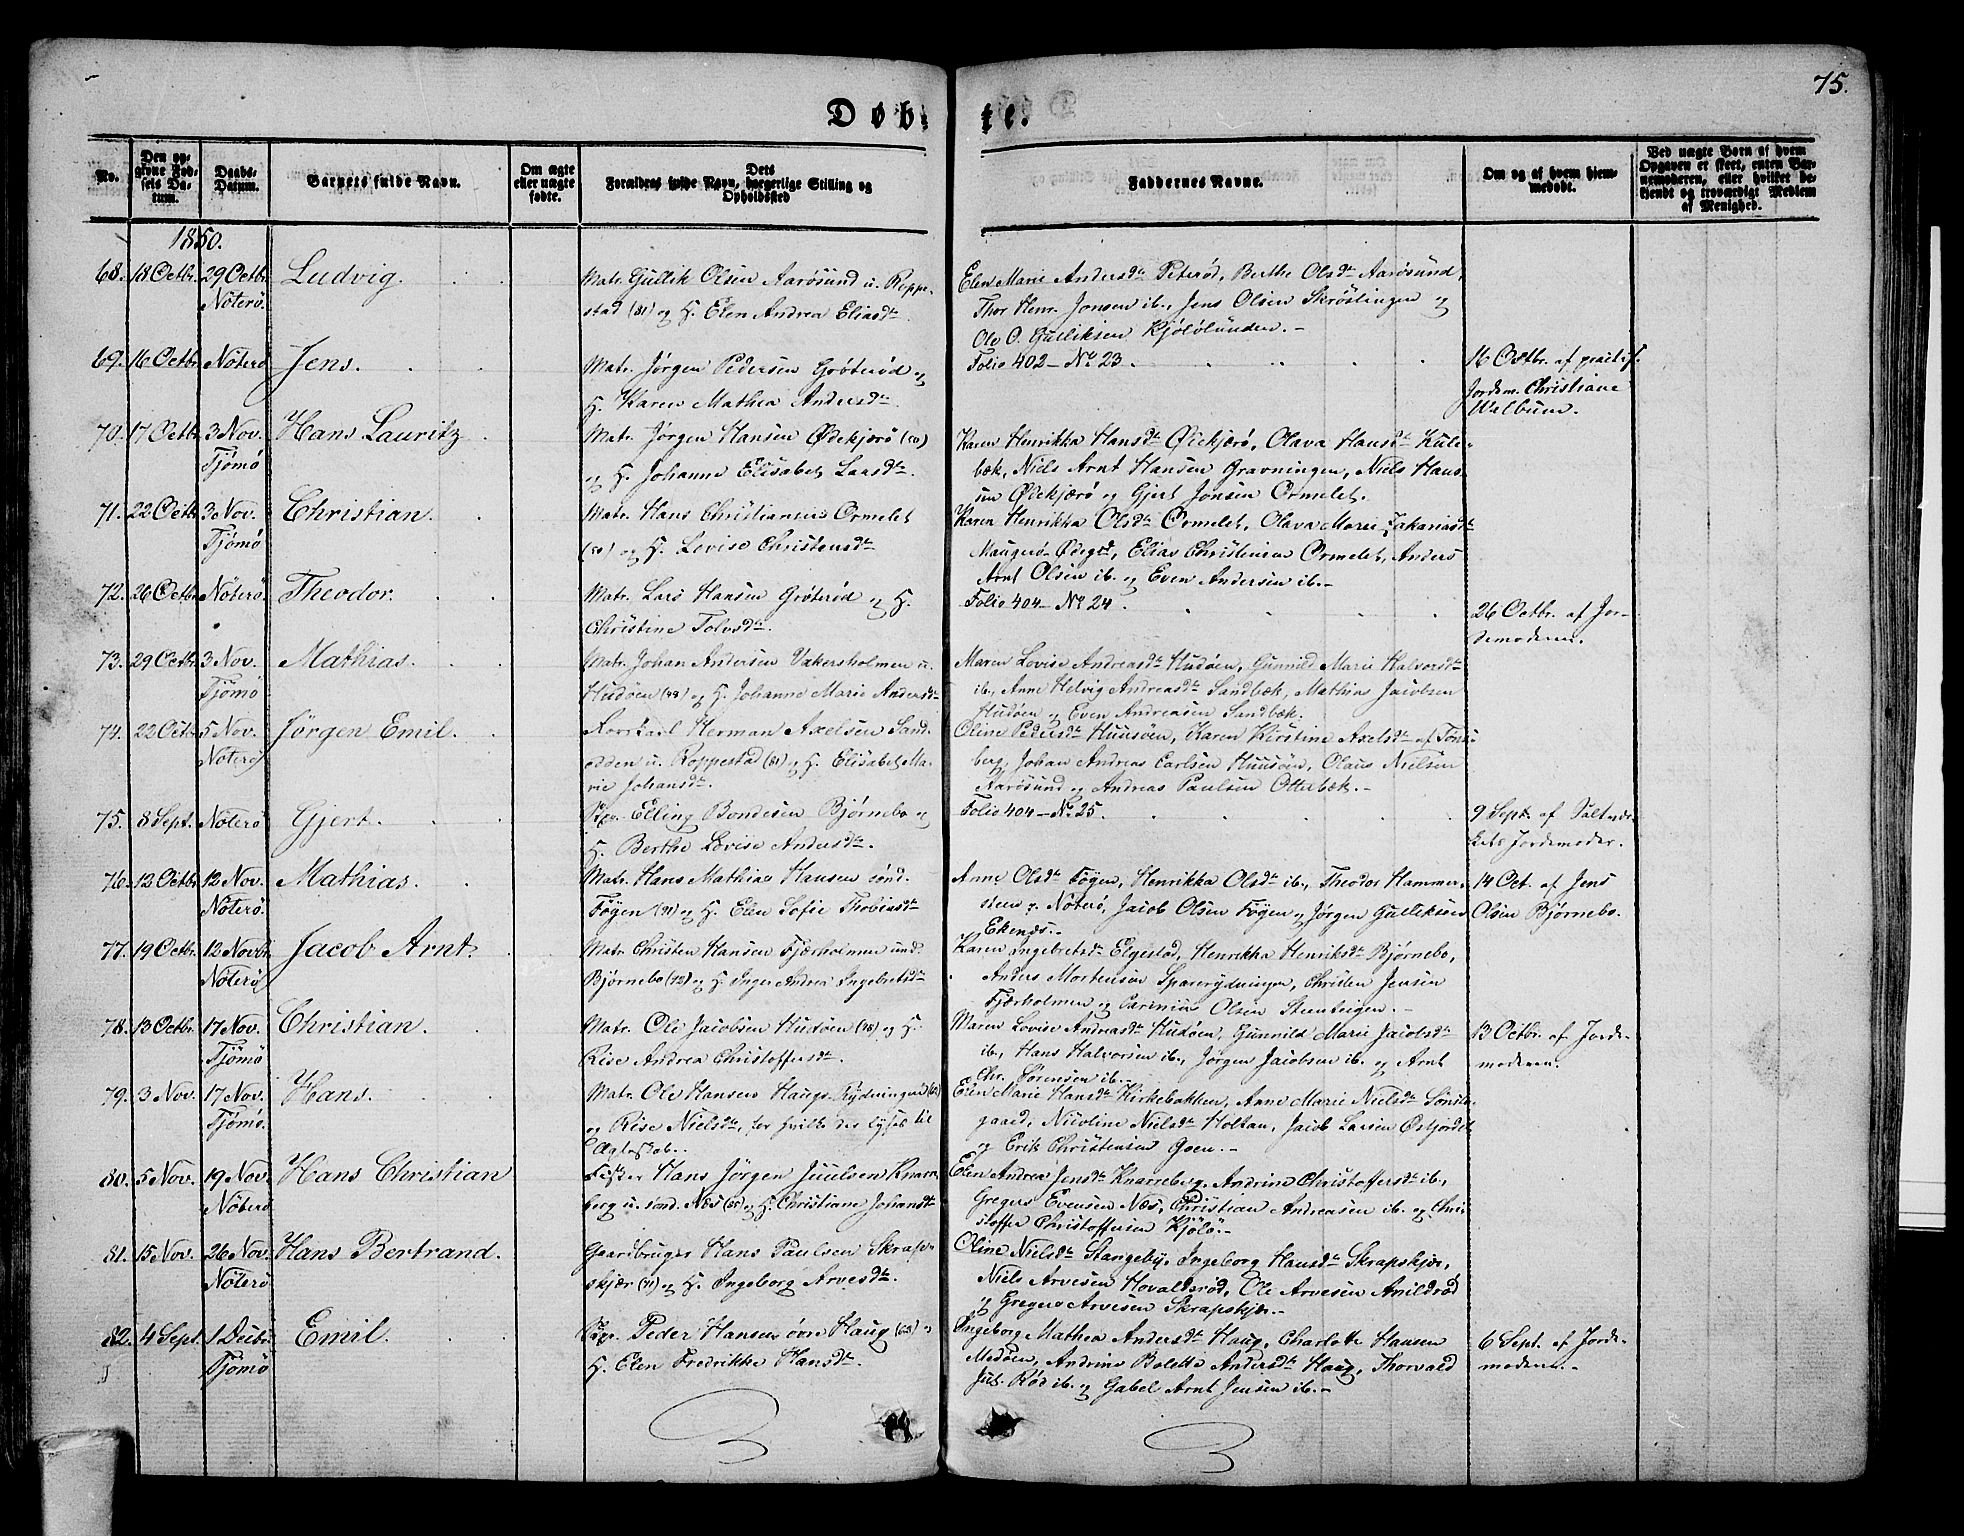 75.
Døbte.
No.
Den opgivne Fødsels Datum.
Daabs-Datum.
Barnets fulde Navn.
Om ægte eller uægte fødte.
Forældres fulde Navn, borgerlige Stilling og Opholdssted
Faddernes Navne.
Om og af hvem hjemmedøbt.
Ved uægte Børn af hvem Opgaven er skeet, enten Barnemoderen, eller hvilket bekendt og troværdigt Medlem af Menighed.
1850.
68. 18 Octbr. 29 Octbr. Nöterö Ludvig.
Matr. Gullik Olsen Aarösund u. Roppe-
stad (31) og H. Elen Andrea Eliasdtr.
Elen Marie Andersdtr Peteröd, Berthe Olsdtr Aarösund,
Thor Henr. Jonsen ib., Jens Olsen Skröslingen og
Ole O. Gulliksen Kjölölunden.-
69. 16 Octbr. Nöterö Jens.
Matr. Jørgen Pedersen Gröteröd og
H. Karen Mathea Andersdtr.
Folio 402 - No 23.
16 Octbr. af practis.
Jordem. Christiane
Welbum.
70. 17 Octbr. 3 Nov. Tjömö Hans Lauritz
Matr. Jørgen Hansen Ødekjærö (50)
og H. Johanne Elisabet Larsdtr.
Karen Henrikka Hansdtr Ødekjærö, Olava Hansdtr Kule-
bæk, Niels Arnt Hansen Gravningen, Niels Han-
sen Ødekjærö og Gjert Jonsen Ormelet.
71. 22 Octbr. 3 Nov. Tjömö Christian.
Matr. Hans Christiansen Ormelet
(50) og H. Lovise Christensdtr
Karen Henrikka Olsdtr Ormelet, Olava Marie Zakariasdtr
Maugerö Ødegd, Elias Christensen Ormelet, Anders
Arnt Olsen ib. og Even Andersen ib.-
72. 26 Octbr. Nöterö Theodor.
Matr. Lars Hansen Gröteröd og H.
Christine Tolvsdtr.
Folio 404 - No 24.
26 Octbr. af Jor-
demoderen.
73. 29 Octbr. 3 Nov. Tjömö Mathias.
Matr. Johan Andersen Vakersholmen u.
Hudöen (49) og H. Johanne Marie Andersdtr
Maren Lovise Andreasdtr Hudöen, Gunnild Marie Halvorsdtr
ib., Anne Helvig Andreasdtr Sandbæk, Mathias Jacobsen
Hudöen og Even Andreasen Sandbæk.
74. 22 Octbr. 5 Nov. Nöterö Jørgen Emil.
Herman Axelsen Sand-
odden u. Roppestad (31) og H. Elisabet Ma-
rie Johansdtr.
Oline Pedersdtr Huusöen, Karen Kirstine Axelsdtr af Töns-
berg, Johan Andreas Carlsen Huusöen, Olaus Nielsen
Aarösund og Andreas Paulsen Otterbæk.-
75. 8 Sept. Nöterö Gjert.
Elling Bondesen Björnebo og
H. Berthe Lovise Andersdtr.
Folio 404 - No 25.
9 Sept. af Saltvær-
kets Jordemoder.
76. 12 Octbr. 12 Nov. Nöterö. Mathias.
Matr. Hans Mathias Hansen sönd.
Föyen (91) og H. Elen Sofie Thobiasdtr
Anne Olsdtr Föyen, Henrikka Olsdtr ib., Theodor Hammer-
steen p. Nöterö, Jacob Olsen Föyen og Jørgen Gulliksen
Ekenæs.-
14 Oct. af Jens
Olsen Björnebo.
77. 19 Octbr. 12 Novbr. Nöterö Jacob Arnt.
Matr. Christen Hansen Fjærholmen und.
Björnebo (42) og H. Inger Andrea Ingebretsdtr
Karen Ingebretsdtr Elgestad, Henrikka Henriksdtr Björnebo,
Anders Mortensen Sparerydningen, Christen Jensen
Fjærholmen og Carinius Olsen Steenteigen.-
78. 13 Octbr. 17 Nov. Tjömö Christian.
Matr. Ole Jacobsen Hudöen (48) og H.
Rise Andrea Christoffersdtr.
Maren Lovise Andreasdtr Hudöen, Gunnild Marie Jacobsdtr
ib., Hans Halvorsen ib., Jørgen Jacobsen ib. og Arnt
Chr. Sörensen ib.-
13 Octbr. af Jorde-
moderen.
79. 3 Nov. 17 Nov. Tjömö. Hans.
Matr. Ole Hansen Haugs Rydningen (62)
og Rise Nielsdtr, for hvilke der lyses til
Ægteskab..
Elen Marie Hansdtr Kirkebakken, Anne Marie Nielsdtr Sönste-
gaard, Nicoline Nielsdtr Holtan, Jacob Larsen Østjordet
og Erik Christensen Goen.-
80. 5 Nov. 19 Nov. Nöterö Hans Christian
Fisker Hans Jörgen Juulsen Knarre-
berg u. sönd. Næs (65) og H. Christiane Johansdtr
Elen Andrea Jensdtr Knarreberg, Andrine Christoffersdtr ib.,
Gregers Evensen Næs, Christian Andreasen ib. og Chri-
stoffer Christoffersen Kjölö.-
81. 15 Nov. 26 Nov. Nöterö Hans Bertrand.
Gaardbruger Hans Paulsen Skraps-
skjær (71) og H. Ingeborg Arvesdtr.
Oline Nielsdtr Stangeby, Ingeborg Hansdtr Skrapskjær,
Niels Arvesen Hovaldsröd, Ole Arvesen Arildröd
og Gregers Arvesen Skrapskjær.-
82. 4 Sept. 1 Decbr. Tjömö Emil.
Peder Hansen övre Haug (63) og
H. Elen Fredrikke Hansdtr.
Ingeborg Mathea Andersdtr Haug, Charlotte Hansen
Medöen, Andrine Bolette Andersdtr Haug, Thorvald
Jul. Röd ib. og Gabel Arnt Jensen ib.-
6 Sept. af Jorde-
moderen.-